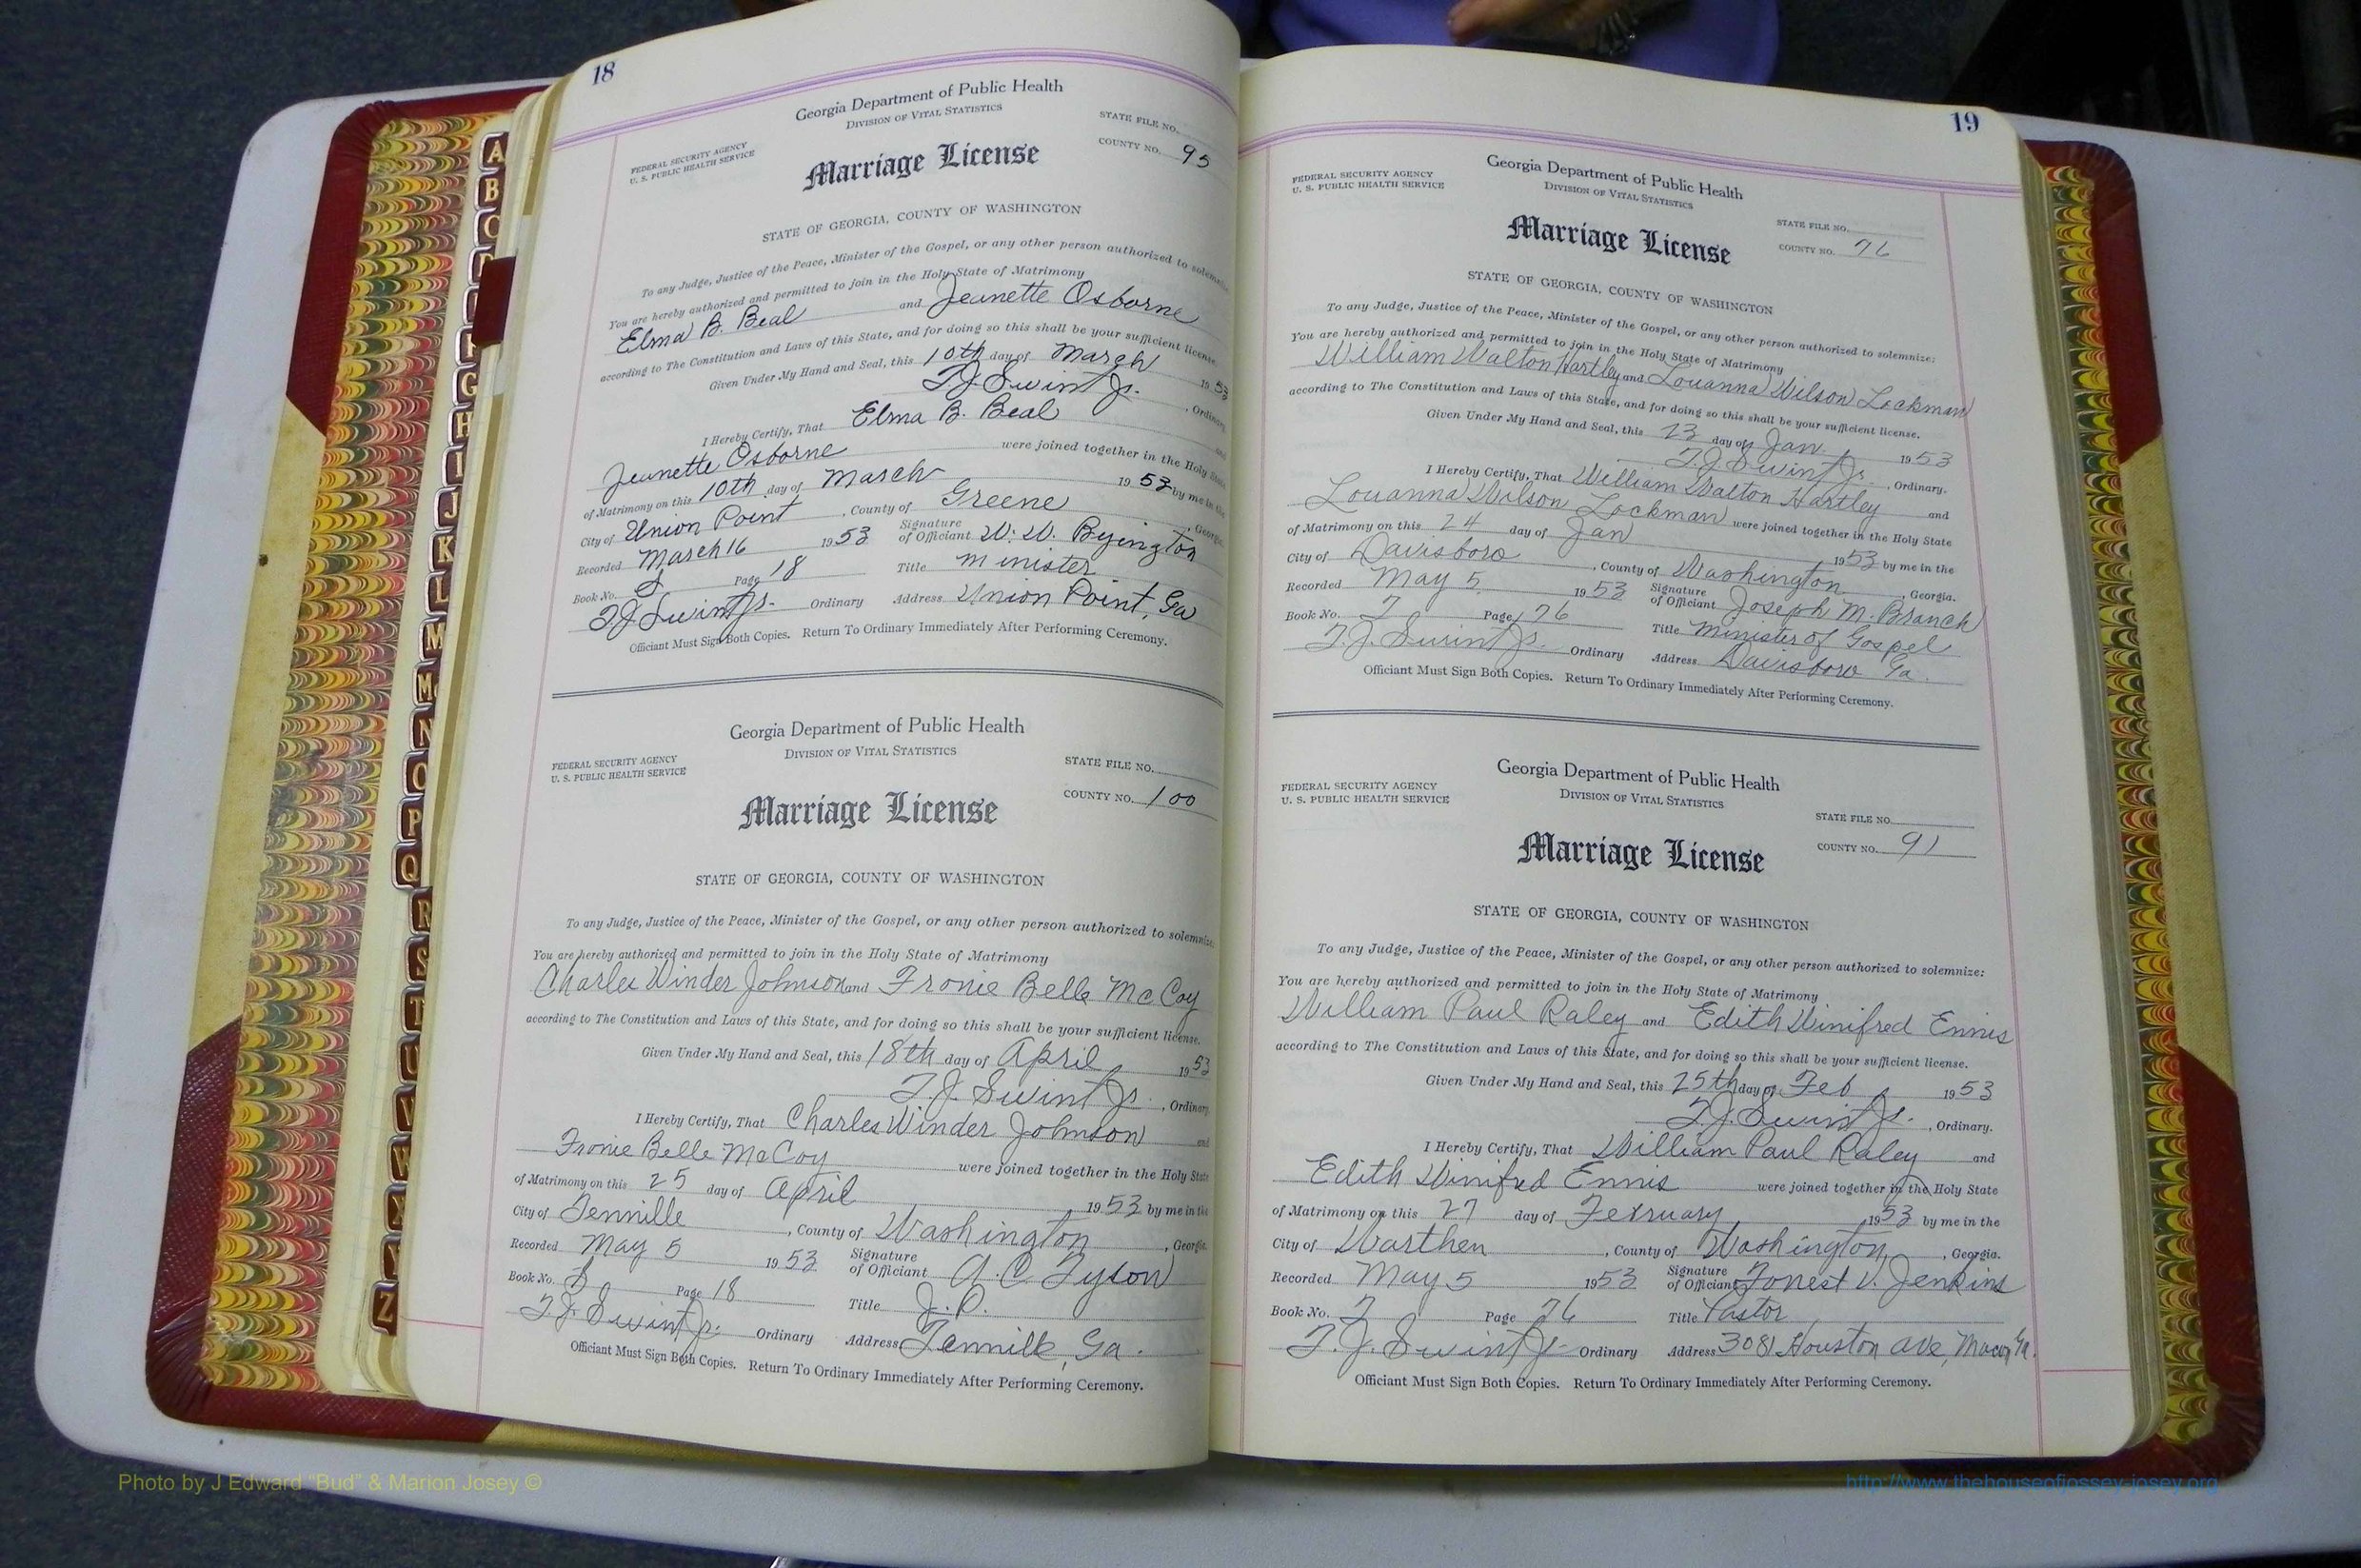 18
Georgia Department of Public Health
DIVISION OF VITAL STATISTICS
FEDERAL SECURITY AGENCY
U. S. PUBLIC HEALTH SERVICE
STATE FILE NO.
COUNTY NO. 95
Marriage License
STATE OF GEORGIA, COUNTY OF WASHINGTON
To any Judge, Justice of the Peace, Minister of the Gospel, or any other person authorized to solemn
You are hereby authorized and permitted to join in the Holy State of Matrimony
Elma B. Beal and Jeanette Osborne
according to The Constitution and Laws of this State, and for doing so this shall be your sufficient license.
Given Under My Hand and Seal, this 10th day of March 1953
T.J. Swint Jr. , Ordinary
I Hereby Certify, That Elma B. Beal and
Jeanette Osborne were joined together in the Holy State
of Matrimony on this 10th day of March 1953 by me in the
City of Union Point , County of Greene , Georgia
Recorded March 16 1953 Signature of Officiant W. W. Byington
Book No. Page 18 Title minister
T.J. Swint Jr. Ordinary Address Union Point, Ga
Officiant Must Sign Both Copies. Return To Ordinary Immediately After Performing Ceremony.
Georgia Department of Public Health
DIVISION OF VITAL STATISTICS
FEDERAL SECURITY AGENCY
U. S. PUBLIC HEALTH SERVICE
STATE FILE NO.
COUNTY NO. 100
Marriage License
STATE OF GEORGIA, COUNTY OF WASHINGTON
To any Judge, Justice of the Peace, Minister of the Gospel, or any other person authorized to solemnize:
You are hereby authorized and permitted to join in the Holy State of Matrimony
Charles Winder Johnson and Fronie Belle McCoy
according to The Constitution and Laws of this State, and for doing so this shall be your sufficient license.
Given Under My Hand and Seal, this 18th day of April 1953
T.J. Swint Jr. , Ordinary
I Hereby Certify, That Charles Winder Johnson and
Fronie Belle McCoy were joined together in the Holy State
of Matrimony on this 25 day of April 1953 by me in the
City of Tennille , County of Washington , Georgia.
Recorded May 5 1953 Signature of Officiant A. C. Tyson
Book No. Page 18 Title J. P.
T.J. Swint Jr. Ordinary Address Tennille, Ga.
Officiant Must Sign Both Copies. Return To Ordinary Immediately After Performing Ceremony.
19
Georgia Department of Public Health
DIVISION OF VITAL STATISTICS
FEDERAL SECURITY AGENCY
U. S. PUBLIC HEALTH SERVICE
STATE FILE NO.
COUNTY NO. 76
Marriage License
STATE OF GEORGIA, COUNTY OF WASHINGTON
To any Judge, Justice of the Peace, Minister of the Gospel, or any other person authorized to solemnize:
You are hereby authorized and permitted to join in the Holy State of Matrimony
William Walton Hartley and Louanna Wilson Lockman
according to The Constitution and Laws of this State, and for doing so this shall be your sufficient license.
Given Under My Hand and Seal, this 23 day of Jan. 1953
T.J. Swint Jr. , Ordinary.
I Hereby Certify, That William Walton Hartley and
Louanna Wilson Lockman were joined together in the Holy State
of Matrimony on this 24 day of Jan 1953 by me in the
City of Davisboro , County of Washington , Georgia.
Recorded May 5 1953 Signature of Officiant Joseph M. Branch
Book No. Page 76 Title Minister of Gospel
T.J. Swint Jr. Ordinary Address Davisboro Ga.
Officiant Must Sign Both Copies. Return To Ordinary Immediately After Performing Ceremony.
Georgia Department of Public Health
DIVISION OF VITAL STATISTICS
FEDERAL SECURITY AGENCY
U. S. PUBLIC HEALTH SERVICE
STATE FILE NO.
COUNTY NO. 91
Marriage License
STATE OF GEORGIA, COUNTY OF WASHINGTON
To any Judge, Justice of the Peace, Minister of the Gospel, or any other person authorized to solemnize:
You are hereby authorized and permitted to join in the Holy State of Matrimony
William Paul Raley and Edith Winifred Ennis
according to The Constitution and Laws of this State, and for doing so this shall be your sufficient license.
Given Under My Hand and Seal, this 25th day of Feb 1953
T.J. Swint Jr. , Ordinary.
I Hereby Certify, That William Paul Raley and
Edith Winifred Ennis were joined together in the Holy State
of Matrimony on this 27 day of February 1953 by me in the
City of Warthen , County of Washington , Georgia.
Recorded May 5 1953 Signature of Officiant Forrest V. Jenkins
Book No. Page 76 Title Pastor
T.J. Swint Jr. Ordinary Address 3081 Houston Ave, Macon Ga.
Officiant Must Sign Both Copies. Return To Ordinary Immediately After Performing Ceremony.
A
B
C
G
H
I
J
K
L
M
Mc
N
O
P
Q
R
S
T
U
V
W
X
Y
Z
Photo by J Edward "Bud" & Marion Josey ©
http://www.thehouseofjossey-josey.org